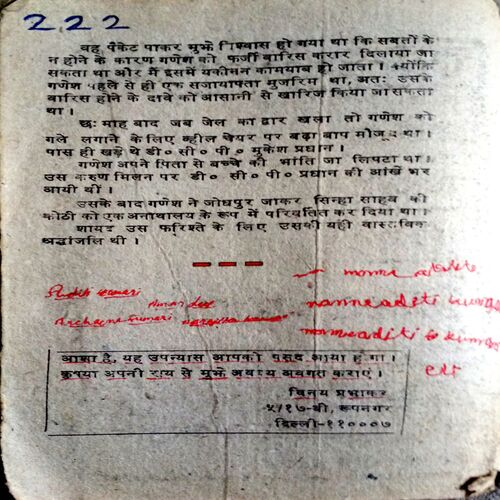 222
वह पैकेट पाकर मुझे विश्वास हो गया था कि सबूतों के
न होने के कारण गणेश को फर्जी वारिस करार दिलाया जा
सकता था और मैं इसमें यकीनन कामयाब हो जाता । क्योंकि
गणेश पहले से ही एक सजायाफ्ता मुजरिम था, अतः उसके
वारिस होने के दावे को आसानी से खारिज किया जा सकता
था ।
छः माह बाद जब जेल का द्वार खुला तो गणेश को
गले लगाने के लिए व्हील चेयर पर बूढ़ा बाप मौजूद था ।
पास ही खड़े थे डी० सी० पी० मुकेश प्रधान ।
गणेश अपने पिता से बच्चे की भांति जा लिपटा था ।
उस करुण मिलन पर डी० सी० पी० प्रधान की आंखें भर
आयी थीं ।
उसके बाद गणेश ने जोधपुर जाकर सिन्हा साहब की
कोठी को एक अनाथालय के रूप में परिवर्तित कर दिया था ।
शायद उस फरिश्ते के लिए उसकी यही वास्तविक
श्रद्धांजलि थी ।
kumari
Archana kumari
aditi kumari
aditi kumar
आशा है, यह उपन्यास आपको पसंद आया होगा ।
कृपया अपनी राय से मुझे अवश्य अवगत कराएं ।
विनय प्रभाकर
५/१७-बी, रूपनगर
दिल्ली-११०००७